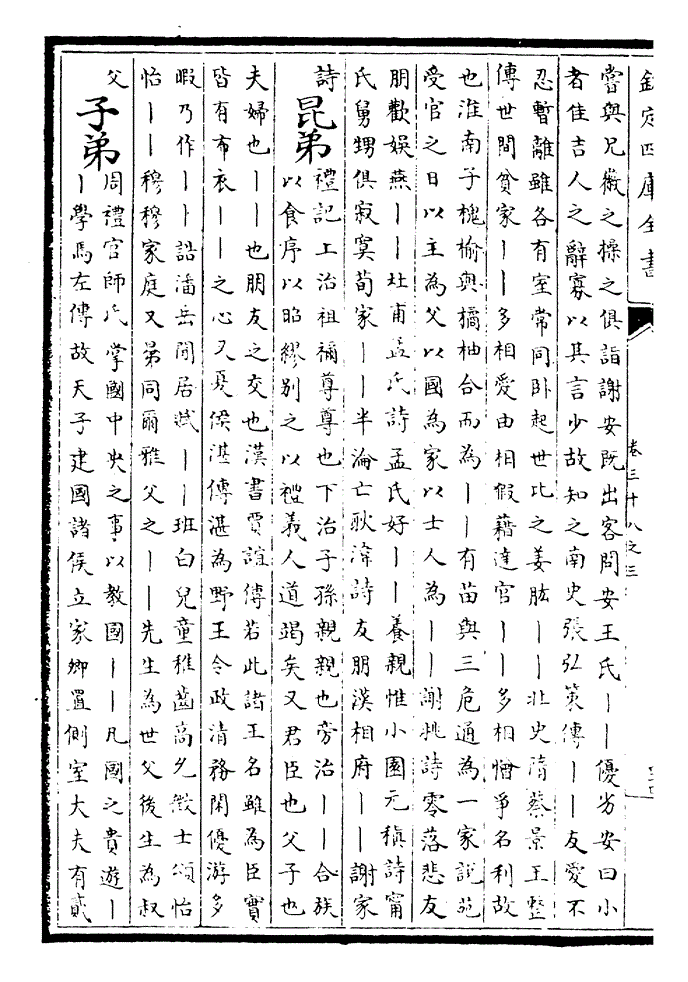 欽定四庫全書
卷三十八之三
嘗與兄徽之操之俱詣謝安既出客問安王氏丨丨優劣安曰小
者佳吉人之辭寡以其言少故知之南史張弘策傳丨丨友愛不
忍暫離雖各有室常同卧起世比之姜肱丨丨北史隋蔡景王整
傳世間貧家丨丨多相愛由相假藉達官丨丨多相憎爭名利故
也淮南子槐榆與橘柚合而為丨丨有苗與三危通為一家說苑
受官之日以主為父以國為家以士人為丨丨謝朓詩零落悲友
朋歡娛燕丨丨杜甫孟氏詩孟氏好丨丨養親惟小園元稹詩甯
氏舅甥俱寂寞荀家丨丨半淪亡耿湋詩友朋漢相府丨丨謝家
詩
昆弟
禮記上治祖禰尊尊也下治子孫親親也旁治丨丨合族
以食序以昭繆別之以禮義人道竭矣又君臣也父子也
夫婦也丨丨也朋友之交也漢書賈誼傳若此諸王名雖為臣實
皆有布衣丨丨之心又夏侯湛傳湛為野王令政清務閑優游多
暇乃作丨丨誥潘岳閒居賦丨丨班白兒童稚齒高允徵士頌怡
怡丨丨穆穆家庭又弟同爾雅父之丨丨先生為世父後生為叔
父
子弟
周禮官師氏掌國中失之事以教國丨丨凡國之貴遊丨
丨學焉左傳故天子建國諸侯立家卿置側室大夫有貳